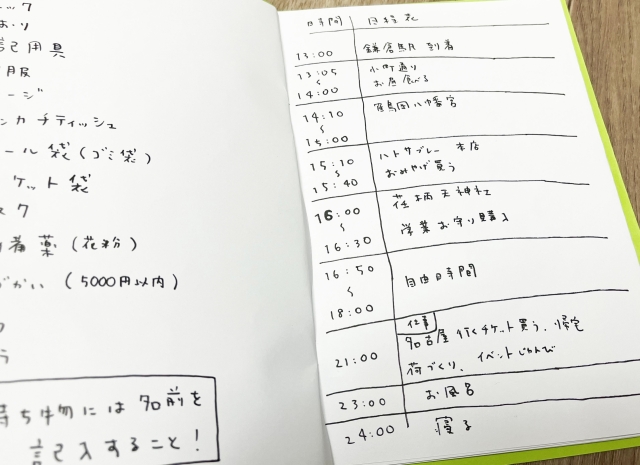 用具
服
ージ
ンカチティッシュ
ール袋(ゴミ袋)
ケット袋
スク
着薬(花粉)
づかい(5000円以内)
持ち物には名前を
記入すること!
日時間 日程表
13:00 鎌倉駅 到着
13:05 小町通り
〜 お昼食べる
14:00
14:10 鶴岡八幡宮
〜
15:00
15:10 ハトサブレー 本店
〜 おみやげ買う
15:40
16:00 荏柄天神社
〜 学業お守り購入
16:30
16:50
〜 自由時間
18:00
仕事
21:00 名古屋行くチケット買う、帰宅
荷づくり、イベントじゅんび
23:00 お風呂
24:00 寝る